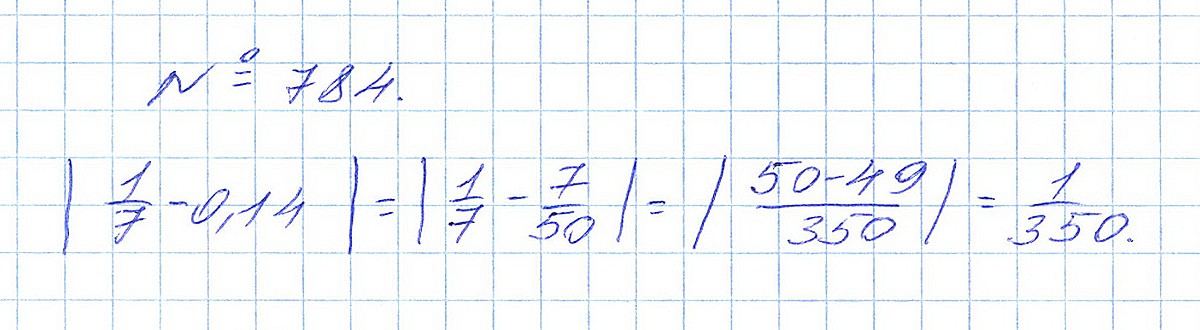 № 784.
| 1/7 - 0,14 | = | 1/7 - 7/50 | = | (50-49)/350 | = 1/350.